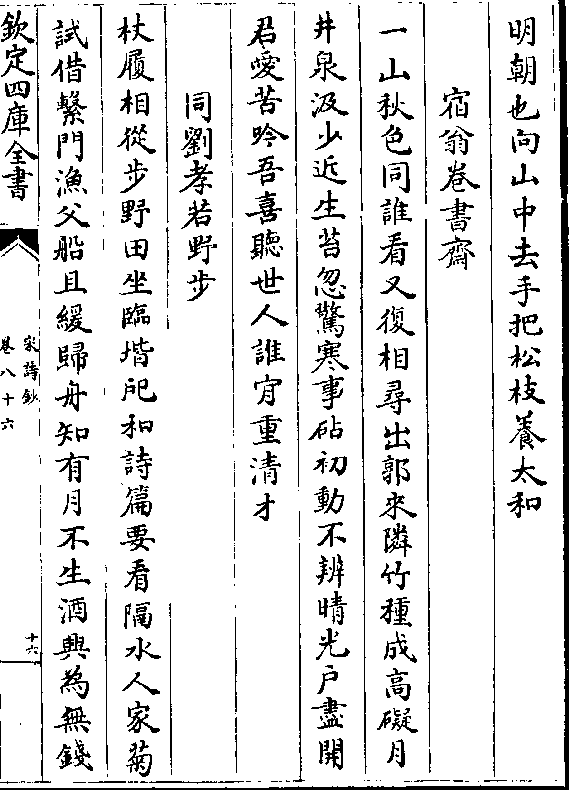 明朝也向山中去手把松枝養太和
宿翁卷書齋
一山秋色同誰看又復相尋出郭來隣竹種成高礙月
井泉汲少近生苔忽驚寒事砧初動不辨晴光戶盡開
君愛苦吟吾喜聽世人誰肯重清才
同劉孝若野步
杖履相從步野田坐臨堦戺和詩篇要看隔水人家菊
試借繫門漁父船且緩歸舟知有月不生酒興為無錢
欽定四庫全書
宋詩鈔
卷八十六
十六